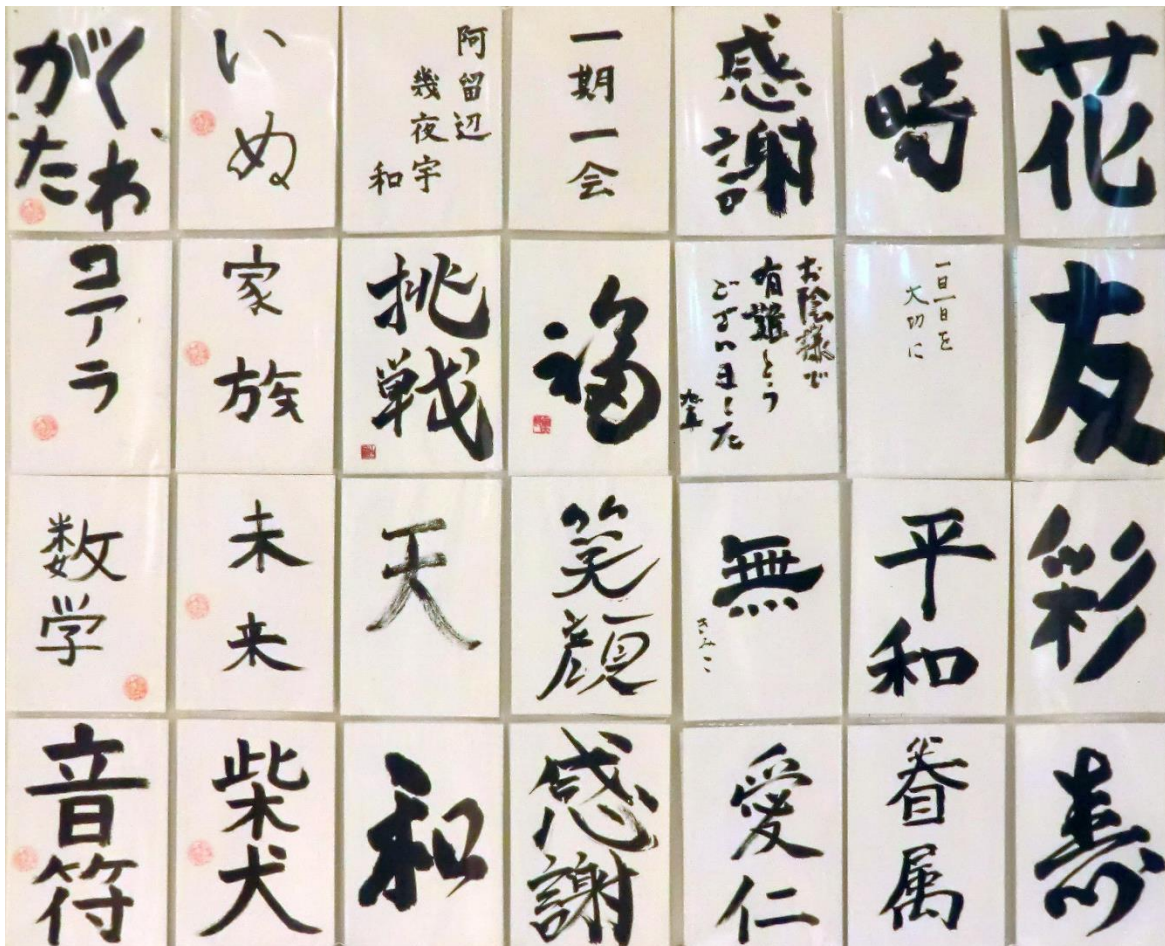 くわ
がた
いぬ
阿留辺
幾夜宇
和
一期一会
感謝
花
コアラ
家族
挑戦
福
お陰様で
有難とう
ございました
一日一日を
大切に
友
数学
未来
天
笑顔
無
きみこ
平和
彩
音符
柴犬
和
感謝
愛仁
眷属